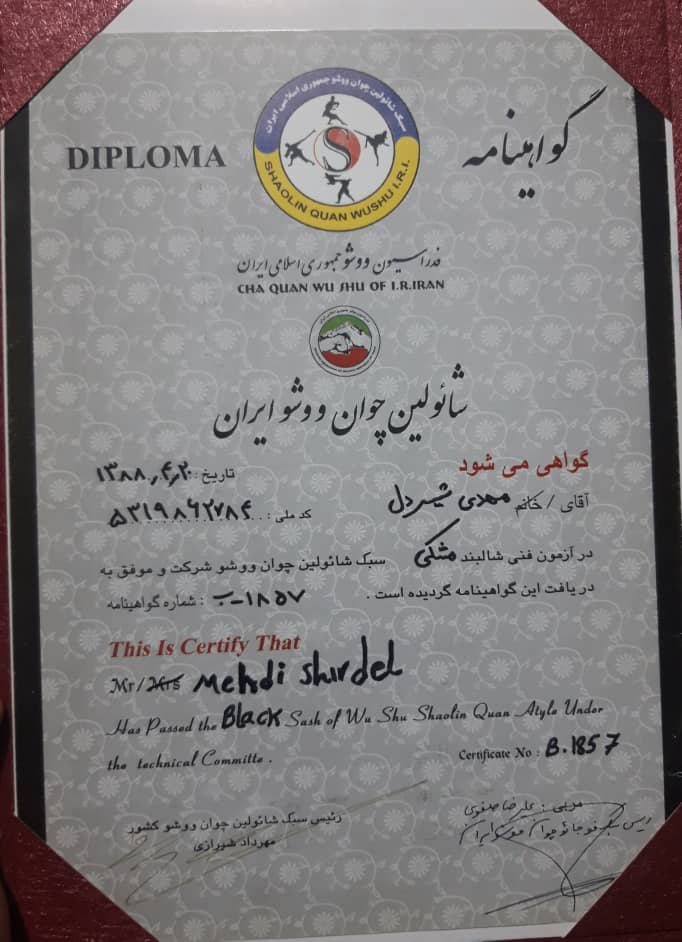 DIPLOMA
گواهینامه
سبک شائولین چوان ووشو جمهوری اسلامی ایران
S
SHAOLIN QUAN WUSHU I.R.I.
فدراسیون ووشو جمهوری اسلامی ایران
CHA QUAN WU SHU OF I.R.IRAN
شائولین چوان ووشو ایران
گواهی می شود
تاریخ: ۱۳۸۸,۴,۲۰
آقای / خانم مهدی شیردل
کد ملی: ۵۳۱۹۸۶۲۷۸۴
در آزمون فنی شالبند مشکی سبک شائولین چوان ووشو شرکت و موفق به
دریافت این گواهینامه گردیده است. شماره گواهینامه: ۱۸۵۷-ب
This Is Certify That
Mr/Mrs Mehdi shirdel
Has Passed the Black Sash of Wu Shu Shaolin Quan Atyle Under
the technical Committe.
Certificate No : B.1857
رئیس سبک شائولین چوان ووشو کشور
مهرداد شیرازی
مربی: علیرضا صفوی